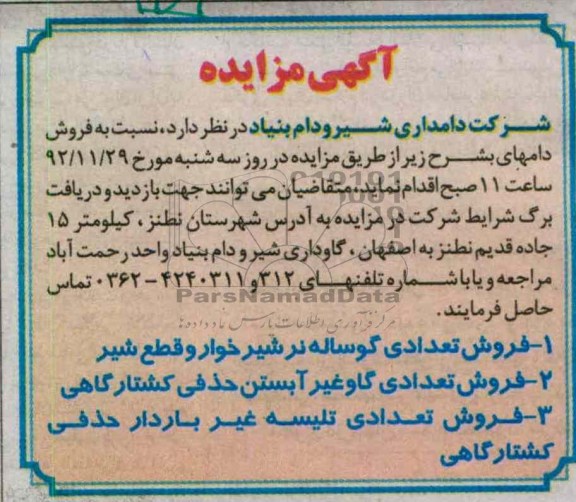 آگهی مزایده
شرکت دامداری شیر و دام بنیاد در نظر دارد، نسبت به فروش
دامهای بشرح زیر از طریق مزایده در روز سه شنبه مورخ ۹۲/۱۱/۲۹
ساعت ۱۱ صبح اقدام نماید، متقاضیان می توانند جهت بازدید و دریافت
برگ شرایط شرکت در مزایده به آدرس شهرستان نطنز، کیلومتر ۱۵
جاده قدیم نطنز به اصفهان، گاوداری شیر و دام بنیاد واحد رحمت آباد
مراجعه و یا با شماره تلفنهای ۳۱۲ و ۴۲۴۰۳۱۱ - ۰۳۶۲ تماس
ParsNamadData
حاصل فرمایند.
مرکز فرآوری اطلاعات پارس نماد داده ها
۱-فروش تعدادی گوساله نر شیر خوار و قطع شیر
۲-فروش تعدادی گاو غیر آبستن حذفی کشتارگاهی
۳-فروش تعدادی تلیسه غیر باردار حذفی
کشتارگاهی